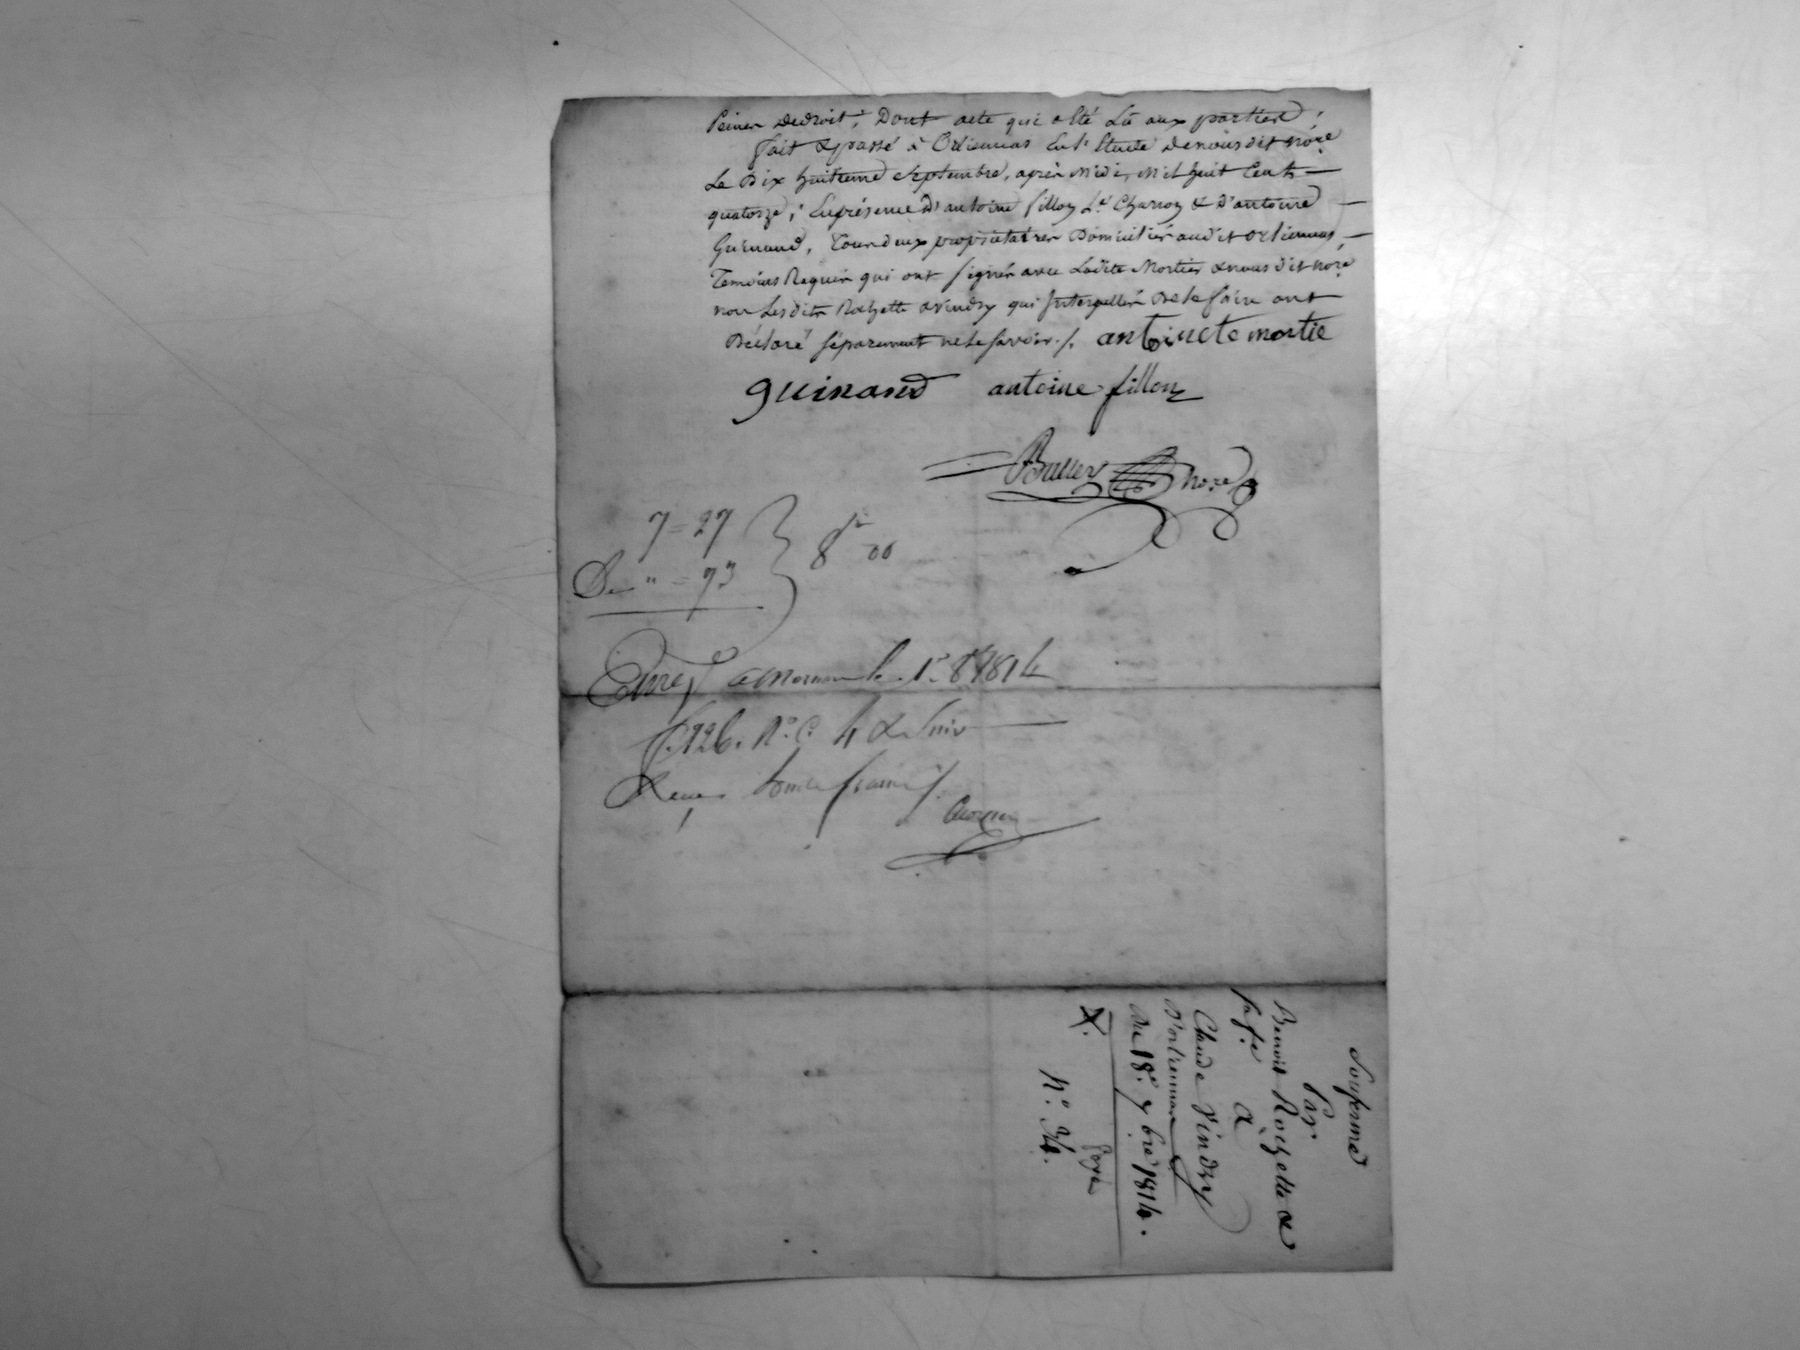 Peines de droit; Dont acte qui a été Lû aux parties;
fait & passé à Orlienas En l'Etude de nous dit No.re
Le Dix huitieme Septembre, après Midi, Mil huit Cents
quatorze; En présence D'antoine fillon Charron & D'antoine
Guinand, Tous deux propriétaires Domiciliés audit Orlienas,
Temoins Requis qui ont signés avec Ladite Mortier & nous dit No.re
non Lesdits Rochette & Vindry qui Interpellés De le faire ont
Déclaré séparement ne le savoir ./. antoinete mortie
guinand antoine fillon
No.re
7 = 27
De " = 73
8 fr 00
Enreg. a Mornan le 1.r 8.e 1814
f. 126. R.o C. 4 & suiv
Reçu
Soufermé
Par
Benoit Rochette &
sa fe
à
Claude Vindry
D'orlienas
Du 18.e 7bre 1814.
X.
payé
N.o 34.